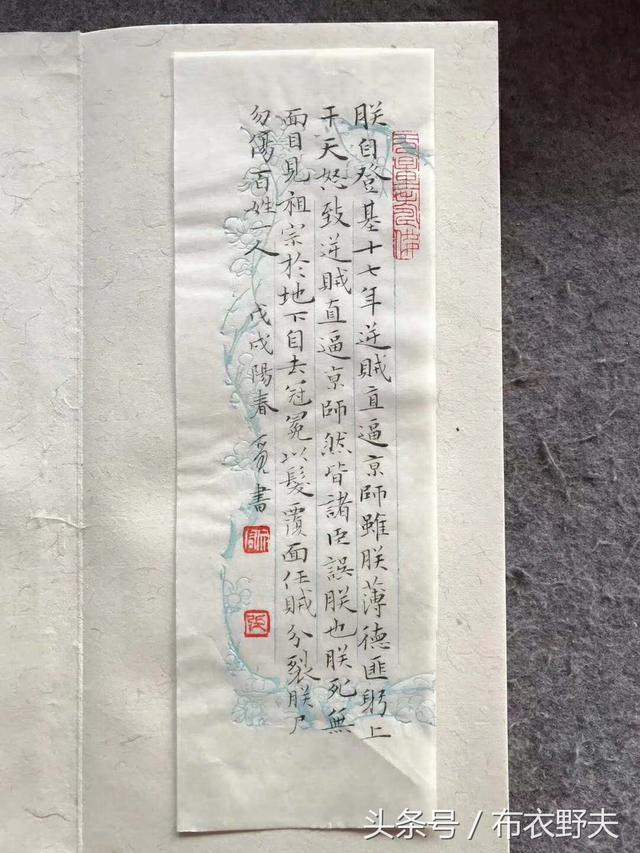 朕自登基十七年逆賊直逼京師雖朕薄德匪躬上
干天怒致逆賊直逼京師然皆諸臣誤朕也朕死無
面目見祖宗於地下自去冠冕以髮覆面任賊分裂朕尸
勿傷百姓一人 戊戌陽春 書
头条号 / 布衣野夫